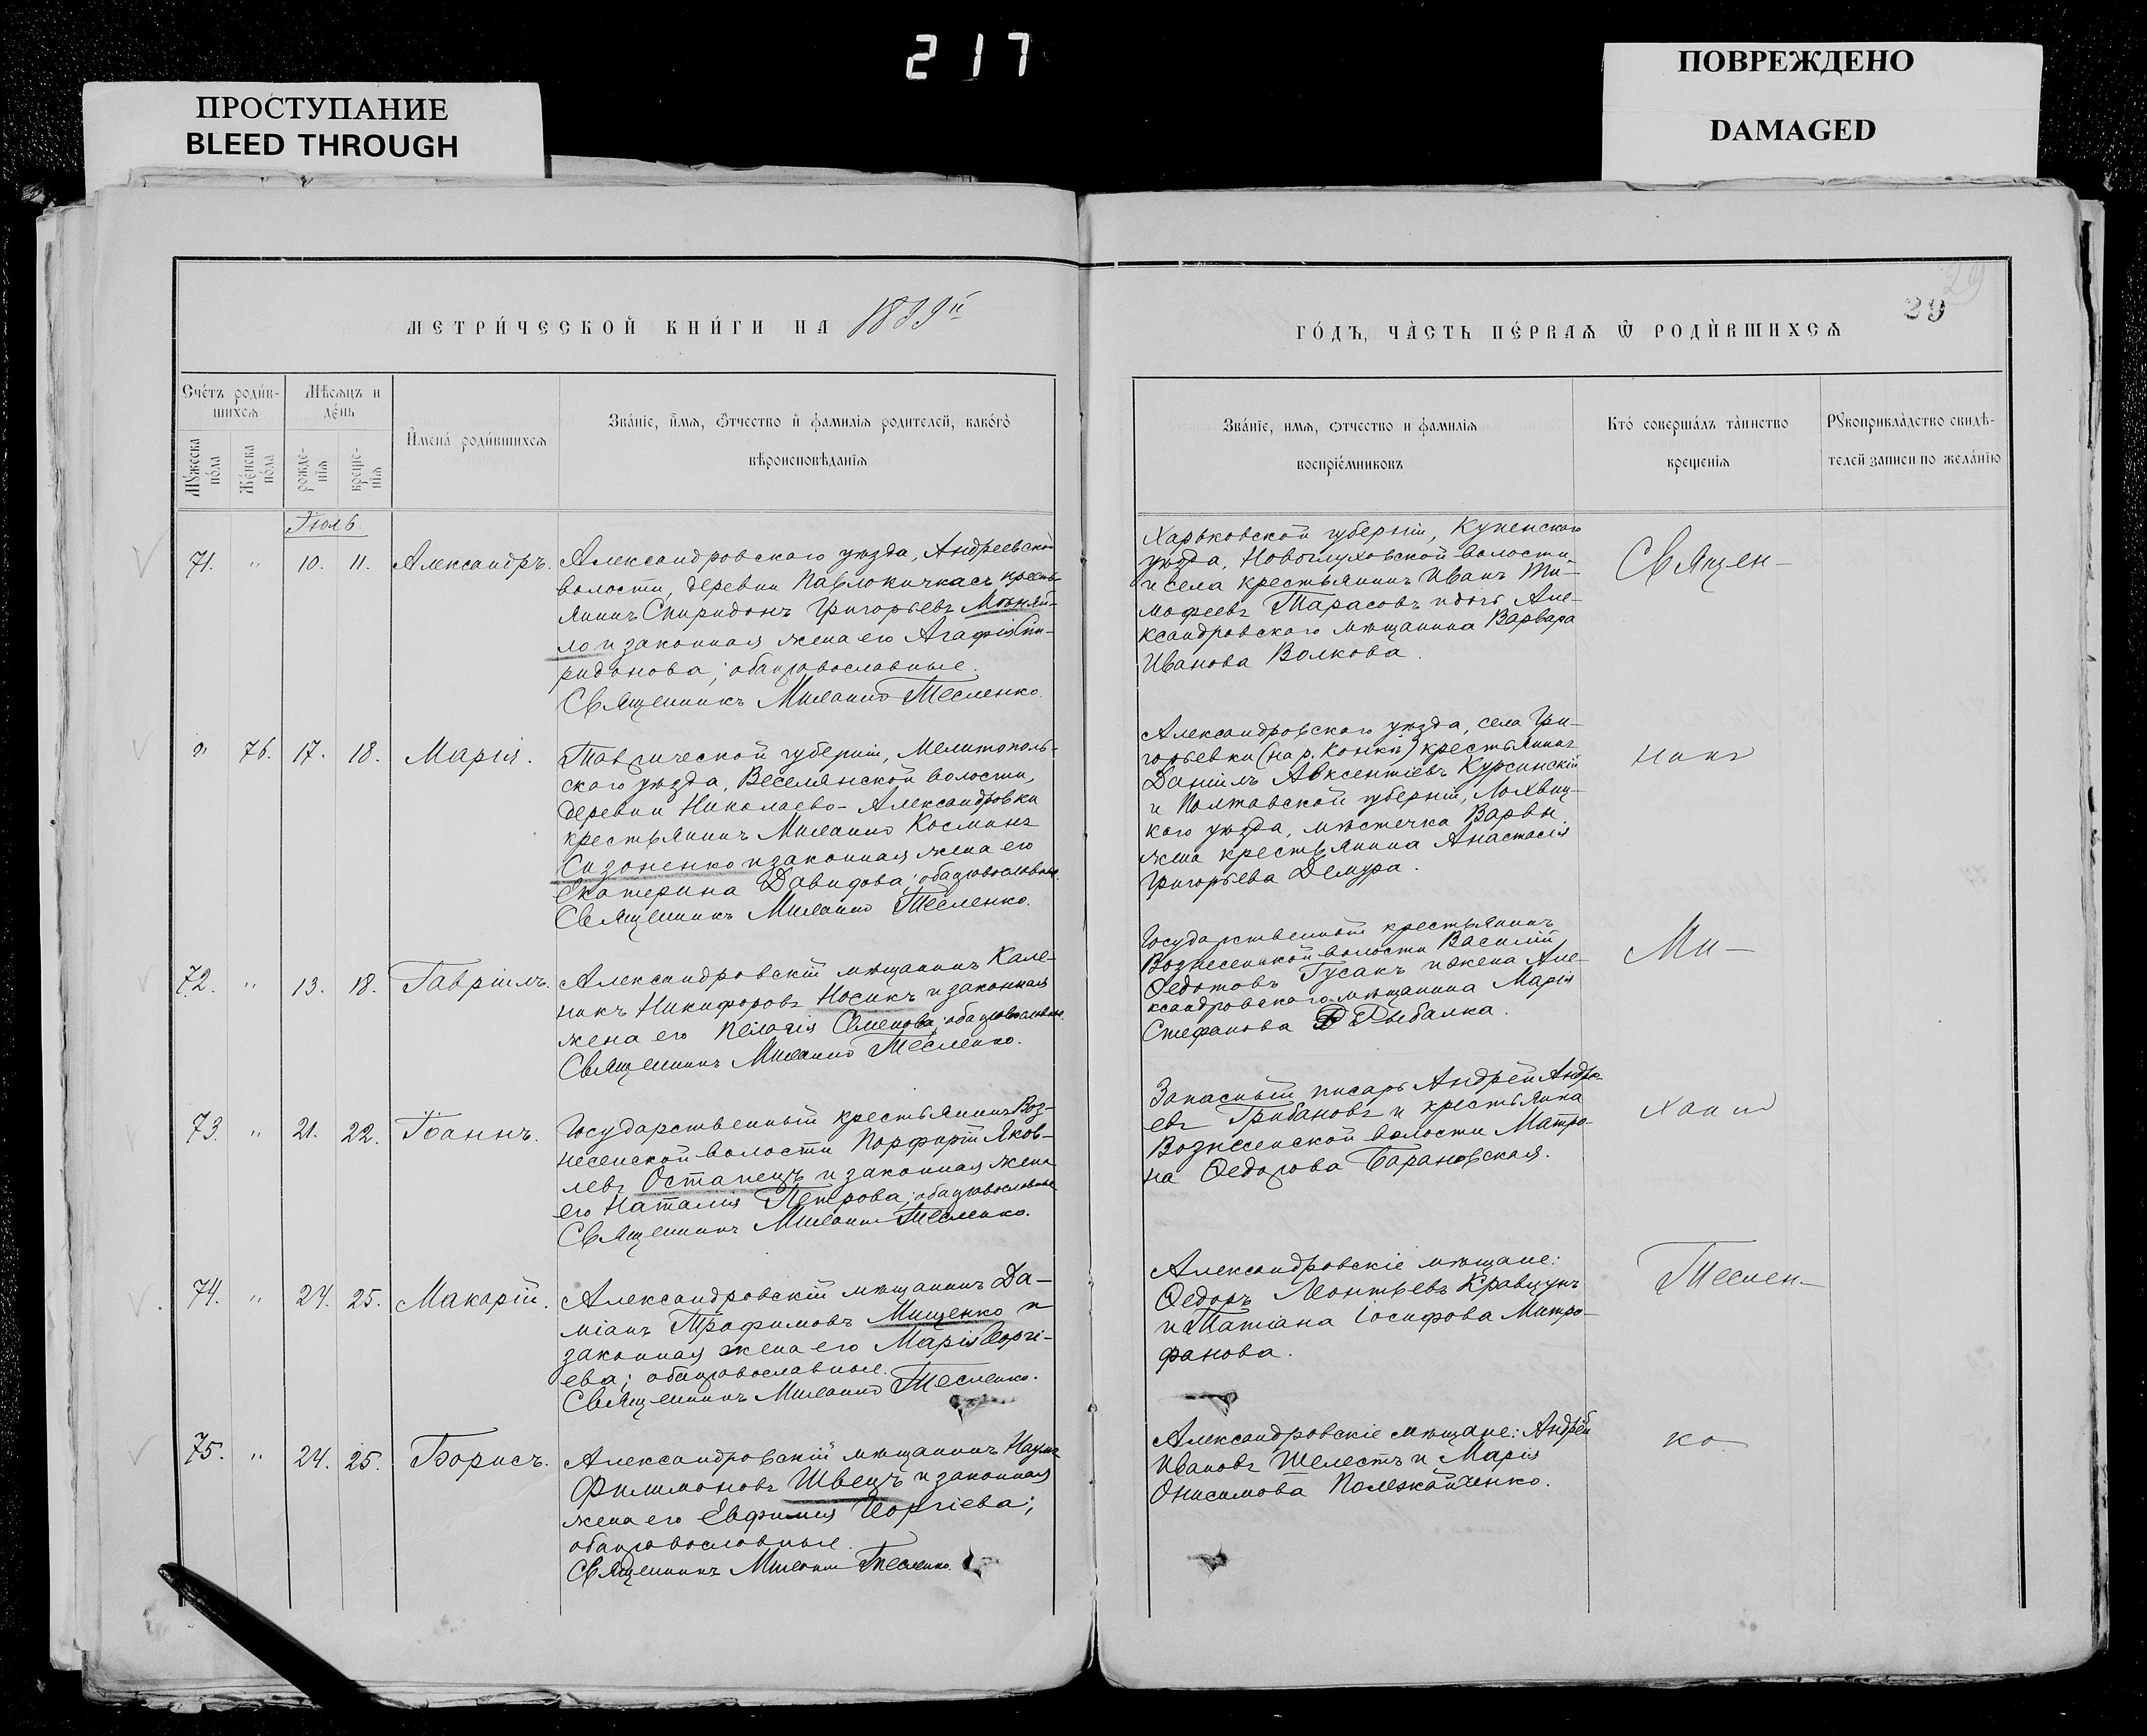 217
ПРОСТУПАНИЕ
BLEED THROUGH
ПОВРЕЖДЕНО
DAMAGED
МЕТРИ́ЧЕСКОЙ КНИ́ГИ НА
ГО́ДЪ, ЧА̀СТЬ ПЕ́РВАѦ Ѿ РОДЍВШИХСѦ
29
Счéтъ роди́в-
шихсѧ
Мѣ́сѧцъ и
дéнь
Мꙋ́жеска
по́ла
Жéнска
по́ла
рожде-
нїѧ
креще-
нїѧ
И҆мена̀ роди́вшихсѧ
Зва́нїе, и҆́мѧ, ѻ҆́тчество и҆ фами́лїѧ роди́телей, како́гѡ
вѣроисповѣ́данїѧ
Зва́нїе, имѧ, ѻтчество и фами́лїѧ
воспрїе́мниковъ
Кто̀ соверша́лъ та̀инство
крещенїѧ
Рꙋкоприкла́дство свидѣ́-
телей записи по жела́нїю
Іюль
71. " 10. 11. Александръ.
Александровскаго уѣзда, Андреевской
волости, деревни Павлокичкасъ кресть-
янинъ Спиридонъ Григорьевъ Мѣняй-
ло и законная жена его Агафія Спи-
ридонова; оба православные.
Священникъ Михаилъ Тесленко.
Харьковской губерніи, Купенскаго
уѣзда, Новоглуховской волости
и села крестьянинъ Иванъ Ти-
мофеевъ Тарасовъ и дочь Але-
ксандровскаго мѣщанина Варвара
Иванова Волкова.
Священ-
" 76. 17. 18. Марія.
Таврической губерніи, Мелитополь-
скаго уѣзда, Веселянской волости,
деревни Николаево-Александровки
крестьянинъ Михаилъ Косминъ
Сизоненко и законная жена его
Екатерина Давидова; оба православные.
Священникъ Михаилъ Тесленко.
Александровскаго уѣзда, села Гри-
горьевки (на р. Конкѣ) крестьянинъ
Даніилъ Авксентіевъ Курсинскій
и Полтавской губерніи, Лохвиц-
каго уѣзда, мѣстечка Варвы
жена крестьянина Анастасія
Григорьева Демура.
никъ
72. " 13. 18. Гавріилъ.
Александровскій мѣщанинъ Кале-
никъ Никифоровъ Носикъ и законная
жена его Пелагія Семенова; оба православные.
Священникъ Михаилъ Тесленко.
Государственный крестьянинъ
Вознесенской волости Василій
Ѳедотовъ Гусакъ и жена Але-
ксандровскаго мѣщанина Марія
Стефанова Рыбалка.
Ми-
73. " 21. 22. Іоаннъ.
Государственный крестьянинъ Воз-
несенской волости Порфирій Яков-
левъ Остапецъ и законная жена
его Наталія Петрова; оба православные
Священникъ Михаилъ Тесленко.
Запасный писарь Андрей Андре-
евъ Грибановъ и крестьянка
Вознесенской волости Матро-
на Ѳедорова Барановская.
хаилъ
74. " 24. 25. Макарій.
Александровскій мѣщанинъ Да-
міанъ Трофимовъ Мищенко и
законная жена его Марія Георгі-
ева; оба православные.
Священникъ Михаилъ Тесленко.
Александровскіе мѣщане:
Ѳедоръ Леонтьевъ Кравцунъ
и Татіана Іосифова Митро-
фанова.
Теслен-
75. " 24. 25. Борисъ.
Александровскій мѣщанинъ Наумъ
Филимоновъ Швецъ и законная
жена его Евфимія Георгіева;
оба православные.
Священникъ Михаилъ Тесленко.
Александровскіе мѣщане: Андрей
Ивановъ Шелестъ и Марія
Онисимова Полежайченко.
ко.